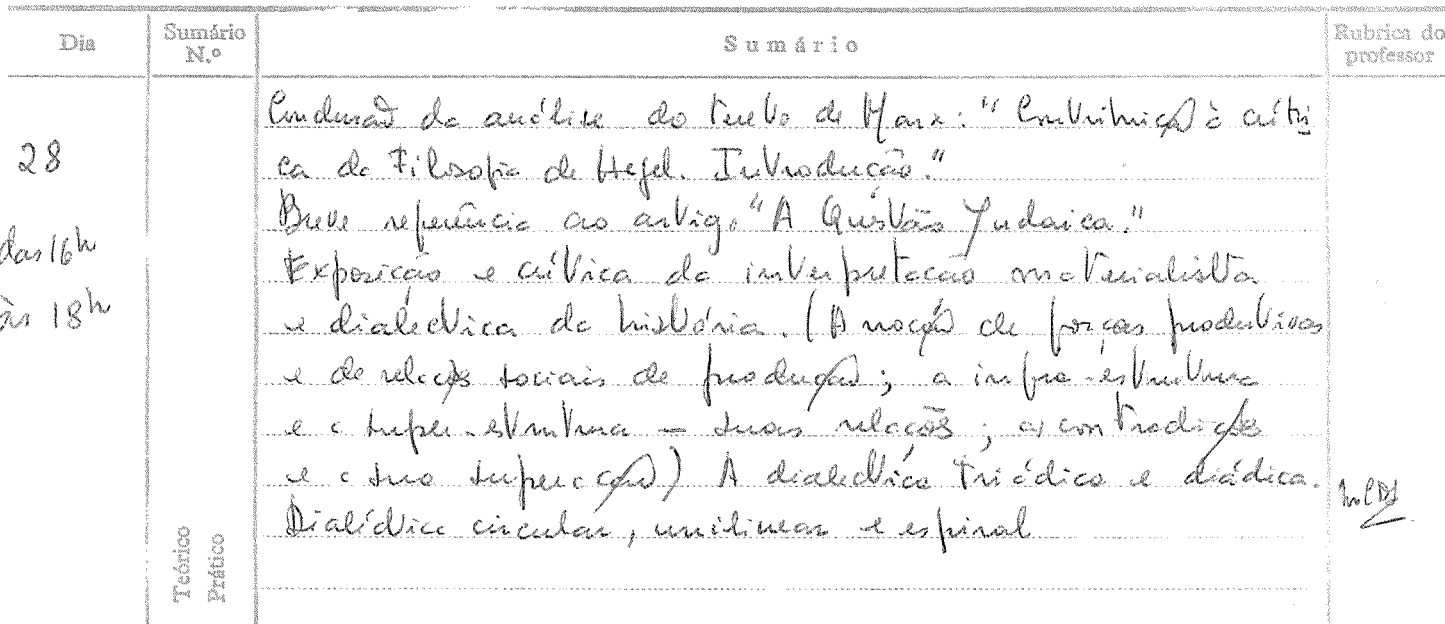 Dia
Sumário N.º
Sumário
Rubrica do professor
28
das 16h
às 18h
Conclusão da análise do texto de Marx: "Contribuição à críti
ca da Filosofia de Hegel. Introdução."
Breve referência ao artigo "A Questão Judaica."
Exposição e crítica da interpretação materialista
e dialéctica da história. (A noção de forças produtivas
e de relações sociais de produção; a infra-estrutura
e a super-estrutura – suas relações; as contradições
e a sua superação) A dialéctica triádica e diádica.
Dialéctica circular, unilinear e espiral
Teórico
Prático